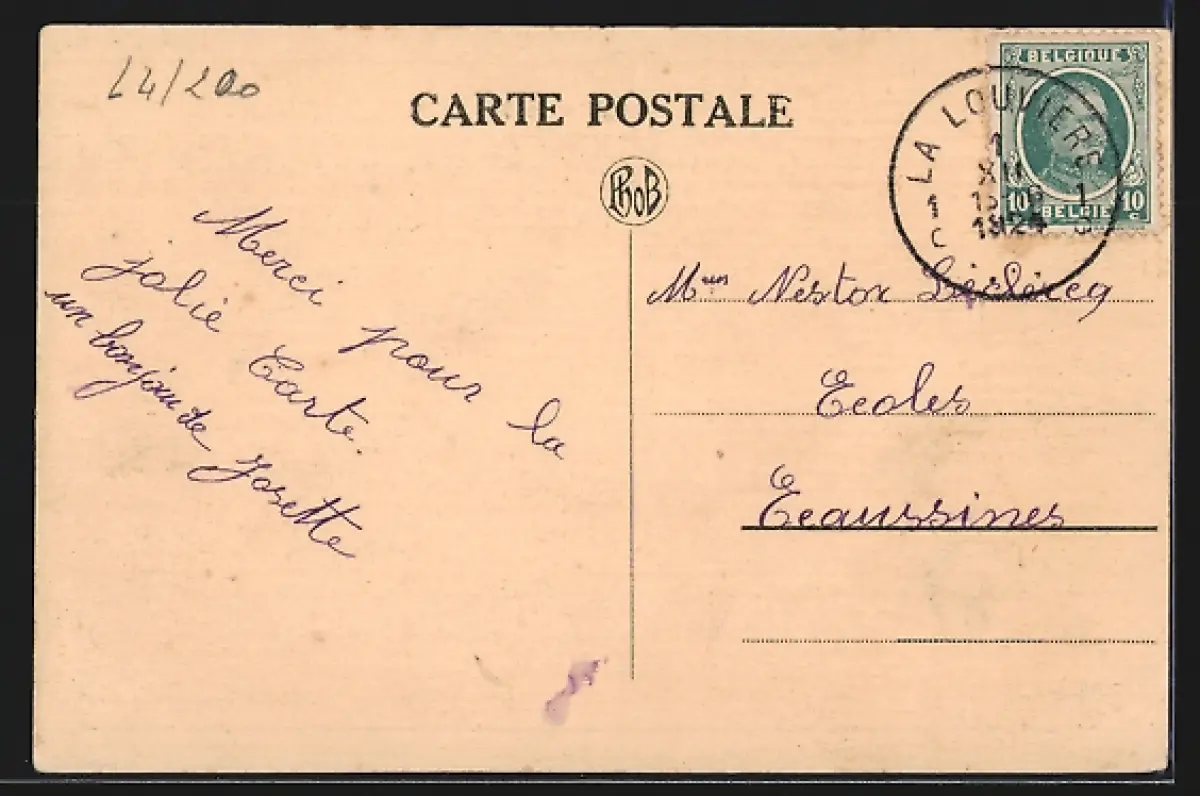 L4/200
CARTE POSTALE
PhoB
BELGIQUE
10 10
BELGIË
LA LOUVIERE
1
XII
1924
1 1
C C
Merci pour la
jolie Carte.
un bonjour de Josette
Nestor Leclercq
Ecoles
Ecaussines